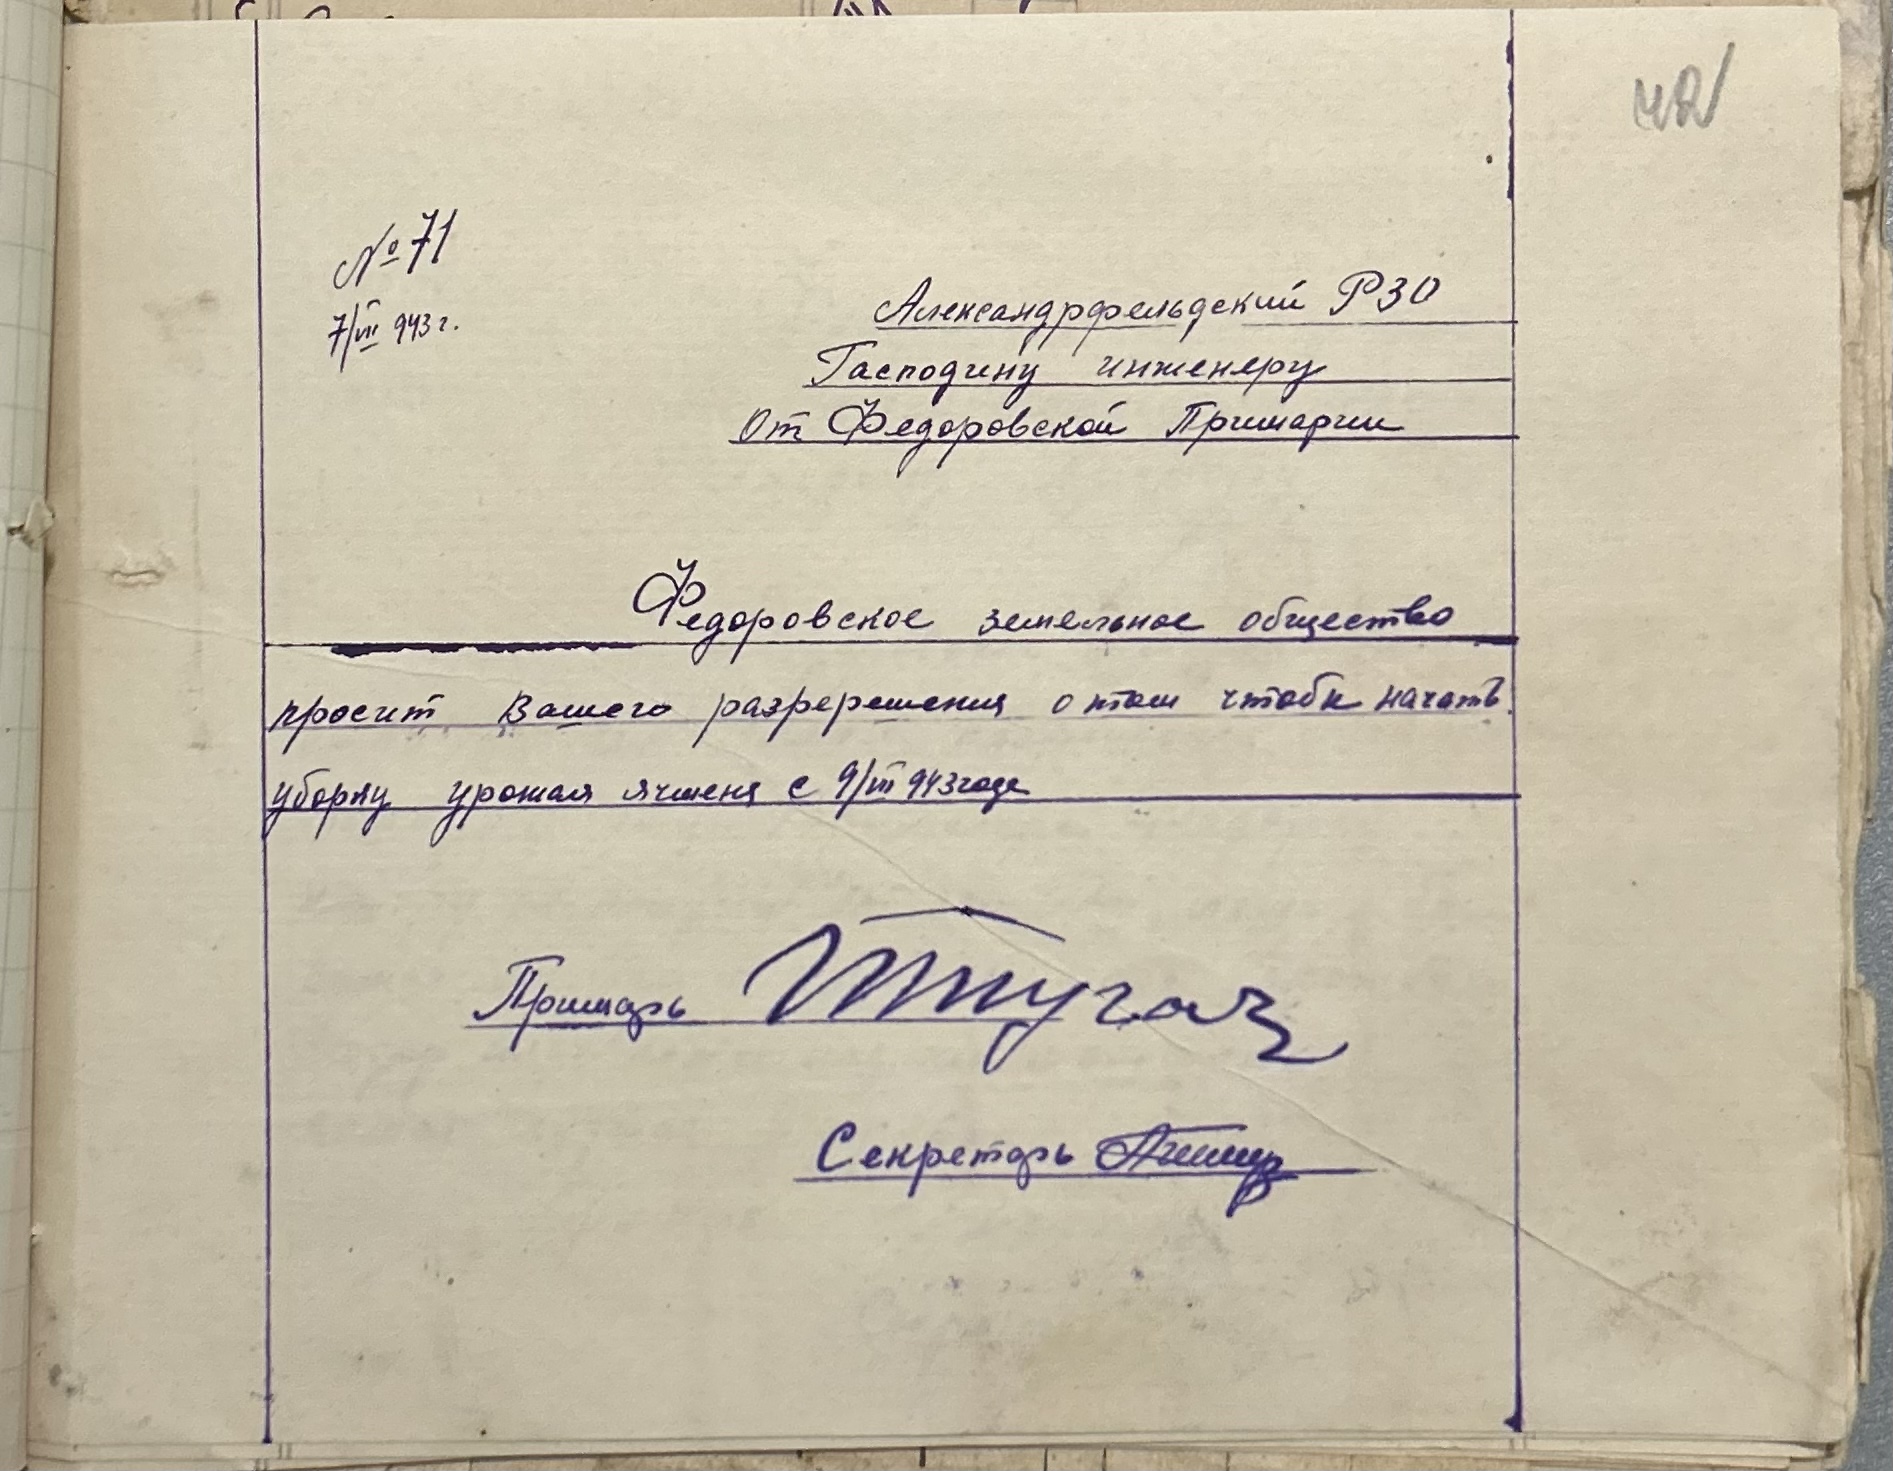 42
№ 71
7/VII 943 г.
Александрфельдский РЗО
Гасподину инженеру
От Федоровской Примарии
Федоровское земельное общество
просит Вашего разререшения о том чтобы начать
уборку урожая ячменя с 9/VII 943 годе
Примарь
Секретарь